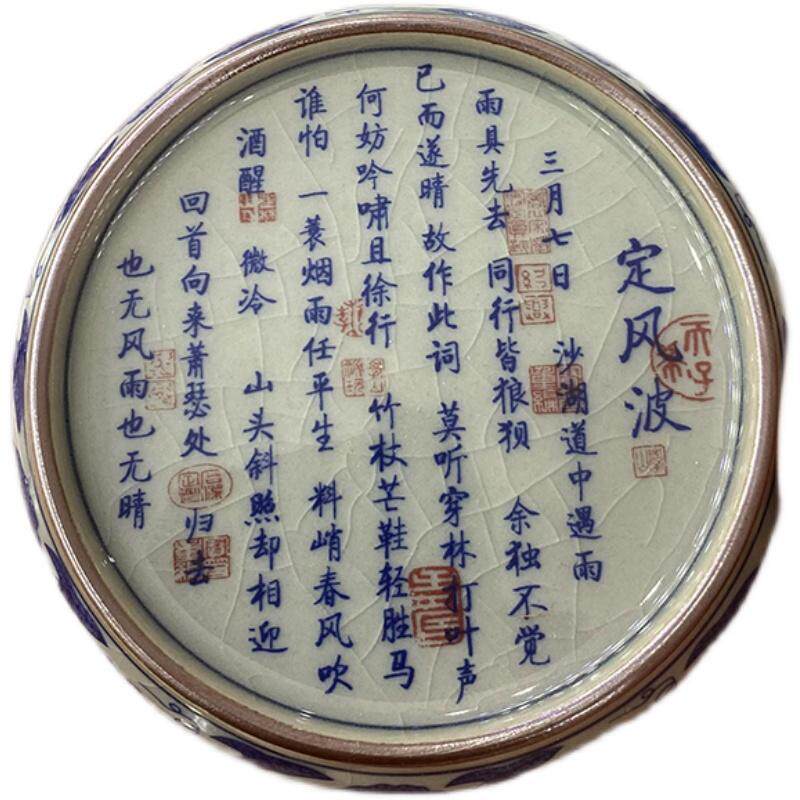 定风波
三月七日 沙湖道中遇雨
雨具先去 同行皆狼狈 余独不觉
已而遂晴 故作此词 莫听穿林打叶声
何妨吟啸且徐行 竹杖芒鞋轻胜马
谁怕 一蓑烟雨任平生 料峭春风吹
酒醒 微冷 山头斜照却相迎
回首向来萧瑟处 归去
也无风雨也无晴